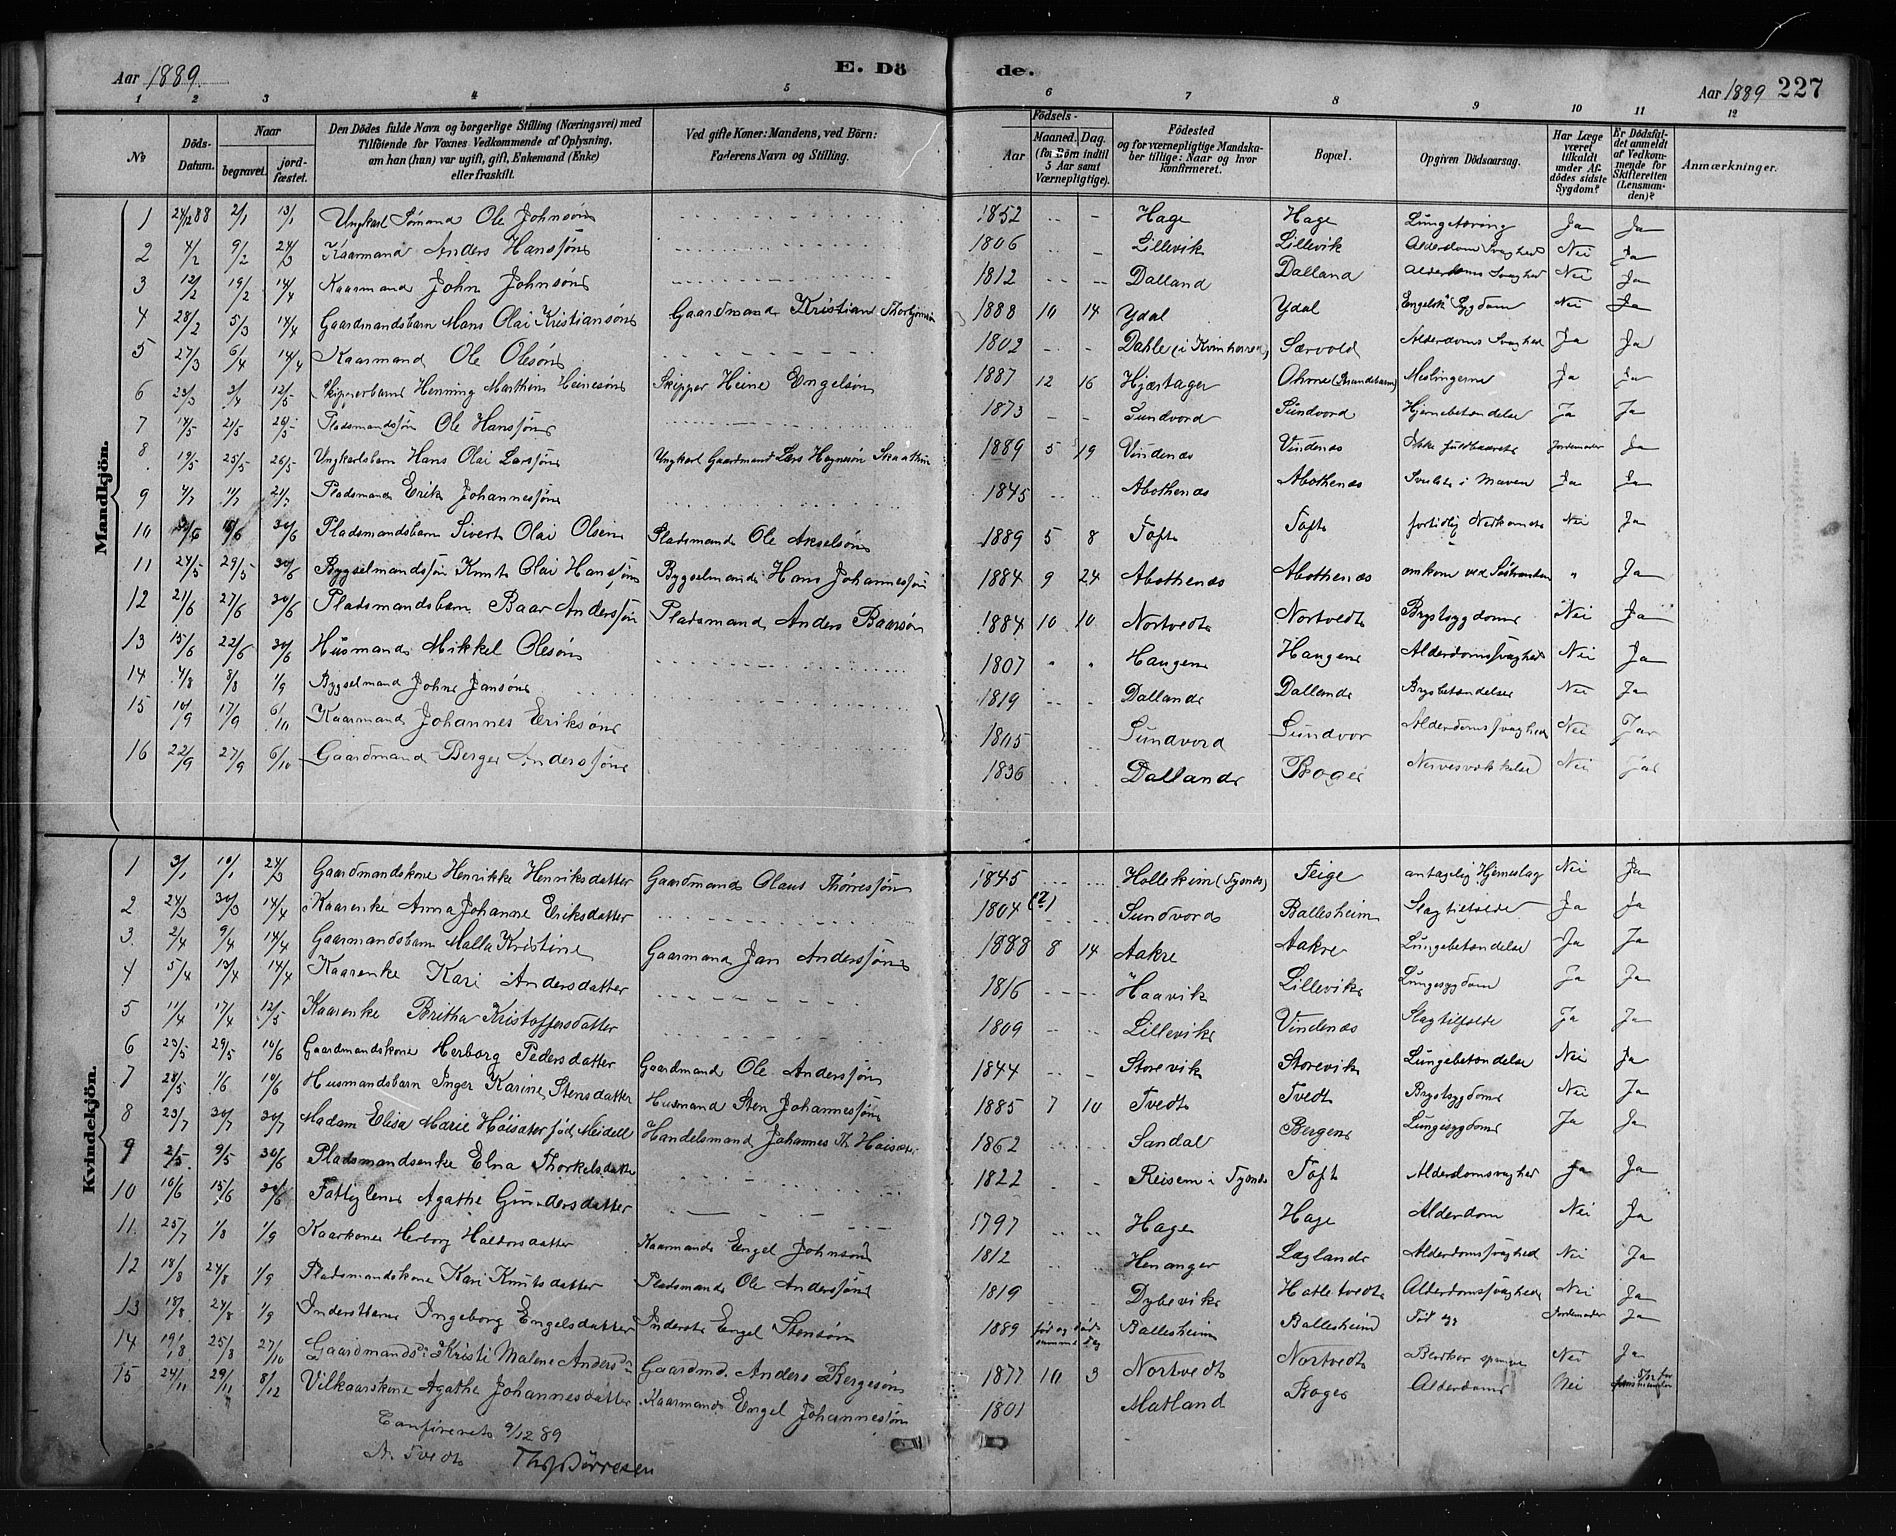 Aar 1889. E. Dö de. Aar 1889 227
1 2 3 4 5 6 7 8 9 10 11 12
No
Döds-Datum.
Naar
begravet. jord-fæstet.
Den Dödes fulde Navn og borgerlige Stilling (Næringsvei) med Tilföiende for Voxnes Vedkommende af Oplysning, om han (hun) var ugift, gift, Enkemand (Enke) eller fraskilt.
Ved gifte Koner: Mandens, ved Börn: Faderens Navn og Stilling.
Födsels-
Aar Maaned. Dag. (for Börn indtil 5 Aar samt Værnepligtige).
Födested og for værnepligtige Mandskaber tillige: Naar og hvor konfirmeret.
Bopæl.
Opgiven Dödsaarsag.
Har Læge været tilkaldt under Afdödes sidste Sygdom?
Er Dödsfaldet anmeldt af Vedkommende for Skifteretten (Lensmanden)?
Anmærkninger.
Mandkjön.
1 24/12 88 2/1 13/1 Ungkarl Sömand Ole Johnsön 1852 Hage Hage Lungetæring Ja Ja
2 4/2 9/2 24/3 Kaarmand Anders Hanssön 1806 Lillevik Lillevik Alderdom Svaghed Nei Ja
3 12/2 19/2 14/4 Kaarmand John Johnsön 1812 Dalland Dalland Alderdoms Svaghed Nei Ja
4 28/2 5/3 14/4 Gaardmandsbarn Hans Olai Kristiansön Gaardmand Kristian 1888 10 14 Ydal Ydal Engelsk Sygdom Nei Ja
5 27/3 6/4 14/4 Kaarmand Ole Olesön 1802 Dahle (i Kvinherred) Særvold Alderdoms Svaghed Ja Ja
6 23/3 3/4 12/5 Skipperbarn Henning Marthin Heinesön Skipper Heine Engelsön 1887 12 16 Hjærtager (Strandebarm) Meslingerne Ja Ja
7 14/5 21/5 29/5 Pladsmandssön Ole Hanssön 1873 Sundvord Sundvord Hjernebetændelse Ja Ja
8 19/5 25/5 26/5 Ungkarlsbarn Hans Olai Larssön Ungkarl Gaardmand Lars 1889 5 19 Vindenæs Vindenæs Ikke fuldbaaret Jordemoder Ja
9 4/7 11/7 21/7 Pladsmand Erik Johannessön 1845 Abothenæs Abothenæs Svulst i Maven Ja Ja
10 30/6 Pladsmandsbarn Sivert Olai Olsen Pladsmand Ole Akselsön 1889 5 8 Toft Toft fortidlig Nedkomst Nei Ja
11 24/5 29/5 30/6 Bygselmandssön Knut Olai Hanssön Bygselmand Hans Johannessön 1884 9 24 Abothenæs Abothenæs omkom ved Söstranden " Ja
12 21/6 27/6 30/6 Pladsmandsbarn Baar Anderssön Pladsmand Anders Baarsön 1884 10 10 Nortvedt Nortvedt Brystsygdom Nei Ja
13 15/6 22/6 30/6 Husmand Mikkel Olesön 1807 " " Haugen Haugen Alderdomssvaghed Nei Ja
14 4/8 8/8 1/9 Bygselmand John Jansön 1819 Dalland Dalland Brystbetændelse Nei Ja
15 10/9 17/9 6/10 Kaarmand Johannes Eriksön 1805 Sundvord Sundvor Alderdomssvaghed Nei Ja
16 22/9 27/9 6/10 Gaardmand Berger Anderssön 1836 Dalland Boge Nervesvækkelse Nei Ja
Kvindekjön.
1 3/1 10/1 24/3 Gaardmandskone Henrikke Henriksdatter Gaardmand Olaus Thorressön 1845 Holleheim (Tysnæs) Teige antagelig Hjerneslag Nei Ja
2 24/3 30/3 14/4 Kaarenke Anna Johanne Eriksdatter 1804 (?) Sundvord Ballesheim Slagtilfælde Ja Ja
3 2/4 9/4 14/4 Gaarmandsbarn Malla Kristine Gaarmand Jan Anderssön 1888 8 14 Aakre Aakre Lungebetændelse Ja Ja
4 5/4 13/4 14/4 Kaarenke Kari Andersdatter 1816 Haavik Lillevik Lungesygdom Ja Ja
5 11/4 17/4 12/5 Kaarenke Britha Kristoffersdatter 1809 Lillevik Vindenæs Slagtilfælde Ja Ja
6 23/5 29/5 10/6 Gaardmandskone Herborg Pedersdatter Gaardmand Ole Anderssön 1844 Storevik Storevik Lungebetændelse Nei Ja
7 28/5 1/6 10/6 Husmandsbarn Inger Karine Stensdatter Husmand Sten Johannessön 1885 7 10 Tvedt Tvedt Brystsygdom Nei Ja
8 23/7 30/7 30/7 Madam Elisa Marie Höisæter föd Meidell Handelsmand Johannes Th. Höisæter 1862 Sandal Bergen Lungesygdom Ja Ja
9 2/5 9/5 30/6 Pladsmandsenke Elna Thorkelsdatter 1822 Reisem i Tysnæs Toft Alderdomsvaghed Ja Ja
10 10/6 15/6 30/6 Fattiglem Agathe Gundersdatter 1797 Hage Hage Alderdom Nei Ja
11 25/7 1/8 1/9 Kaarkone Herborg Haldorsdatter Kaarmand Engel Johnsön 1812 Henanger Læglande Alderdomssvaghed Nei Ja
12 18/8 24/8 1/9 Pladsmandskone Kari Knutsdatter Pladsmand Ole Anderssön 1819 Dybevik Hatletvedt Alderdomssvaghed Nei Ja
13 18/8 24/8 1/9 Ingeborg Engelsdatter Inderst Engel Stensön 1889 föd og död samme Dag Ballesheim Ballesheim Jordemoder Ja
14 19/8 25/8 27/10 Gaardmandsd. Kristi Malene Andersd. Gaardmd. Anders Bergesön 1877 10 3 Nortvedt Nortvedt Nei Ja
15 24/11 29/11 8/12 Vilkaarskone Agathe Johannesdatter Kaarmand Engel Johannessön 1801 Matland Boge Alderdom Nei
Conförert 9/12 89
A. Tvedt Th. Börresen